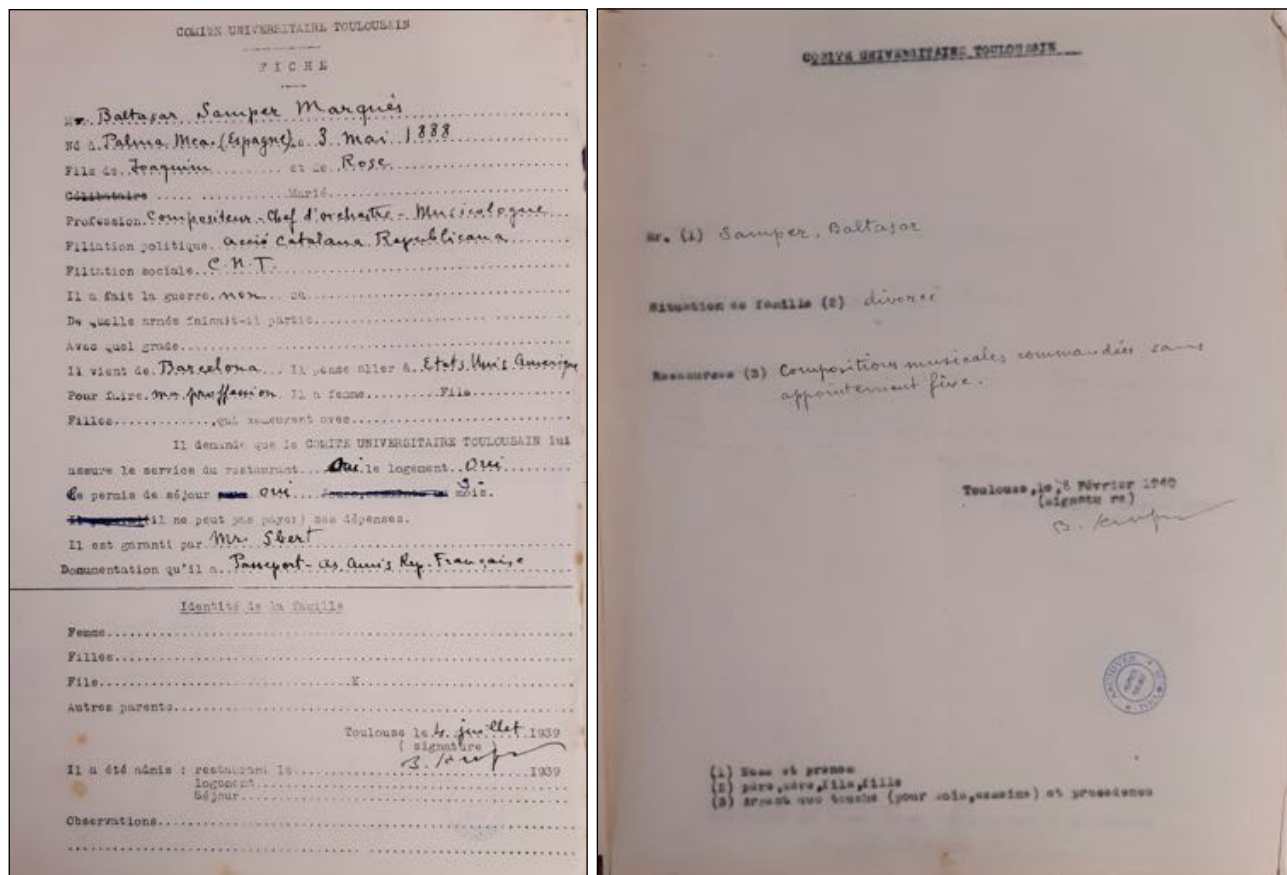 COMITE UNIVERSITAIRE TOULOUSAIN
FICHE
Mr. Baltasar Samper Marqués
Né à Palma Mca. (Espagne) le 3 mai 1888
Fils de Joaquim et de Rose
Célibataire Marié
Profession Compositeur - Chef d'orchestre - Musicologue
Filiation politique. Acció Catalana Republicana
Filiation sociale. C.N.T.
Il a fait la guerre. non ou
De quelle armée faisait-il partie
Avec quel grade
Il vient de Barcelona Il pense aller à Etats Unis Amerique
Pour faire ma proffesion Il a femme Fils
Filles ,qui demeurent avec
Il demande que le COMITE UNIVERSITAIRE TOULOUSAIN lui
assure le service du restaurant Oui le logement Oui
Le permis de séjour oui 3 mois.
(il ne peut pas payer) ses dépenses.
Il est garanti par Mr. Sbert
Documentation qu'il a Passeport - Amis Rep. Française
Identité de la famille
Femme
Filles
Fils X
Autres parents
Toulouse le 4 juillet 1939
( signature )
Il a été admis : restaurant le 1939
logement
Séjour
Observations
COMITE UNIVERSITAIRE TOULOUSAIN
Mr. (1) Samper, Baltasar
Situation de famille (2) divorcé
Ressources (3) Compositions musicales commandées sans
appointement fixe.
Toulouse, le, 8 Février 1940
(signature)
ARCHIVES
(1) Noms et prenom
(2) père,mère,fils,fille
(3) Argent que touche (pour mois,semaine) et procedence